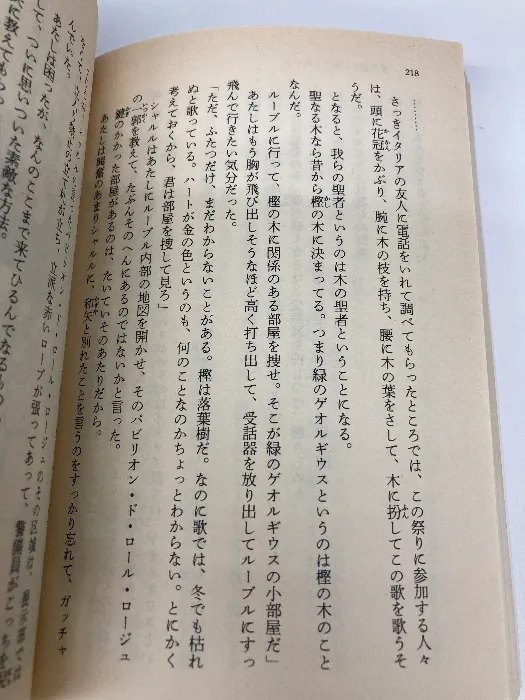 218
………
さっきイタリアの友人に電話をいれて調べてもらったところでは、この祭りに参加する人々
は、頭に花冠をかぶり、腕に木の枝を持ち、腰に木の葉をさして、木に扮してこの歌を歌うそ
うだ。
となると、我らの聖者というのは木の聖者ということになる。
聖なる木なら昔から樫の木に決まってる。つまり緑のゲオルギウスというのは樫の木のこと
なんだ。
ルーブルに行って、樫の木に関係のある部屋を捜せ。そこが緑のゲオルギウスの小部屋だ」
あたしはもう胸が飛び出しそうなほど高く打ち出して、受話器を放り出してルーブルにすっ
飛んで行きたい気分だった。
「ただ、ふたつだけ、まだわからないことがある。樫は落葉樹だ。なのに歌では、冬でも枯れ
ぬと歌っている。ハートが金の色というのも、何のことなのかちょっとわからない。とにかく
考えておくから、君は部屋を捜して見ろ」
シャルルはあたしにルーブル内部の地図を開かせ、そのパビリオン・ド・ロール・ロージュ
の一郭を教えて、たぶんそのへんにあるのではないかと言った。
鍵のかかった部屋があるのは、たいていそのあたりだから。
あたしは興奮のあまりシャルルに、和矢と別れたことを言うのをすっかり忘れて、ガッチャ
ド・ロール・ロージュのその区域は、展示部では
立派な赤いロープが張ってあって、警備員がこっちを
あたしは困ったが、なんのここまで来てひるんでなるもの
て、ついに思いついた素敵な方法。